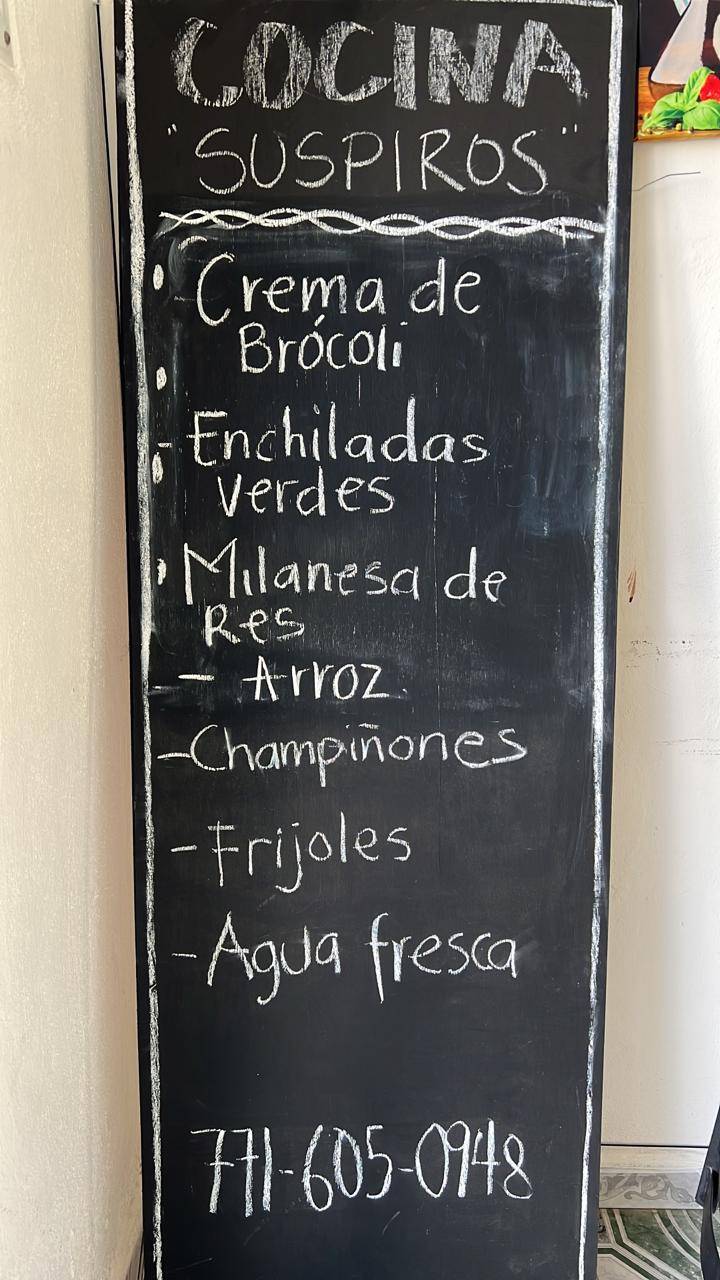 COCINA
"SUSPIROS"
• Crema de
Brócoli
•
- Enchiladas
verdes
• Milanesa de
Res
- Arroz
- Champiñones
- Frijoles
- Agua fresca
771-605-0948